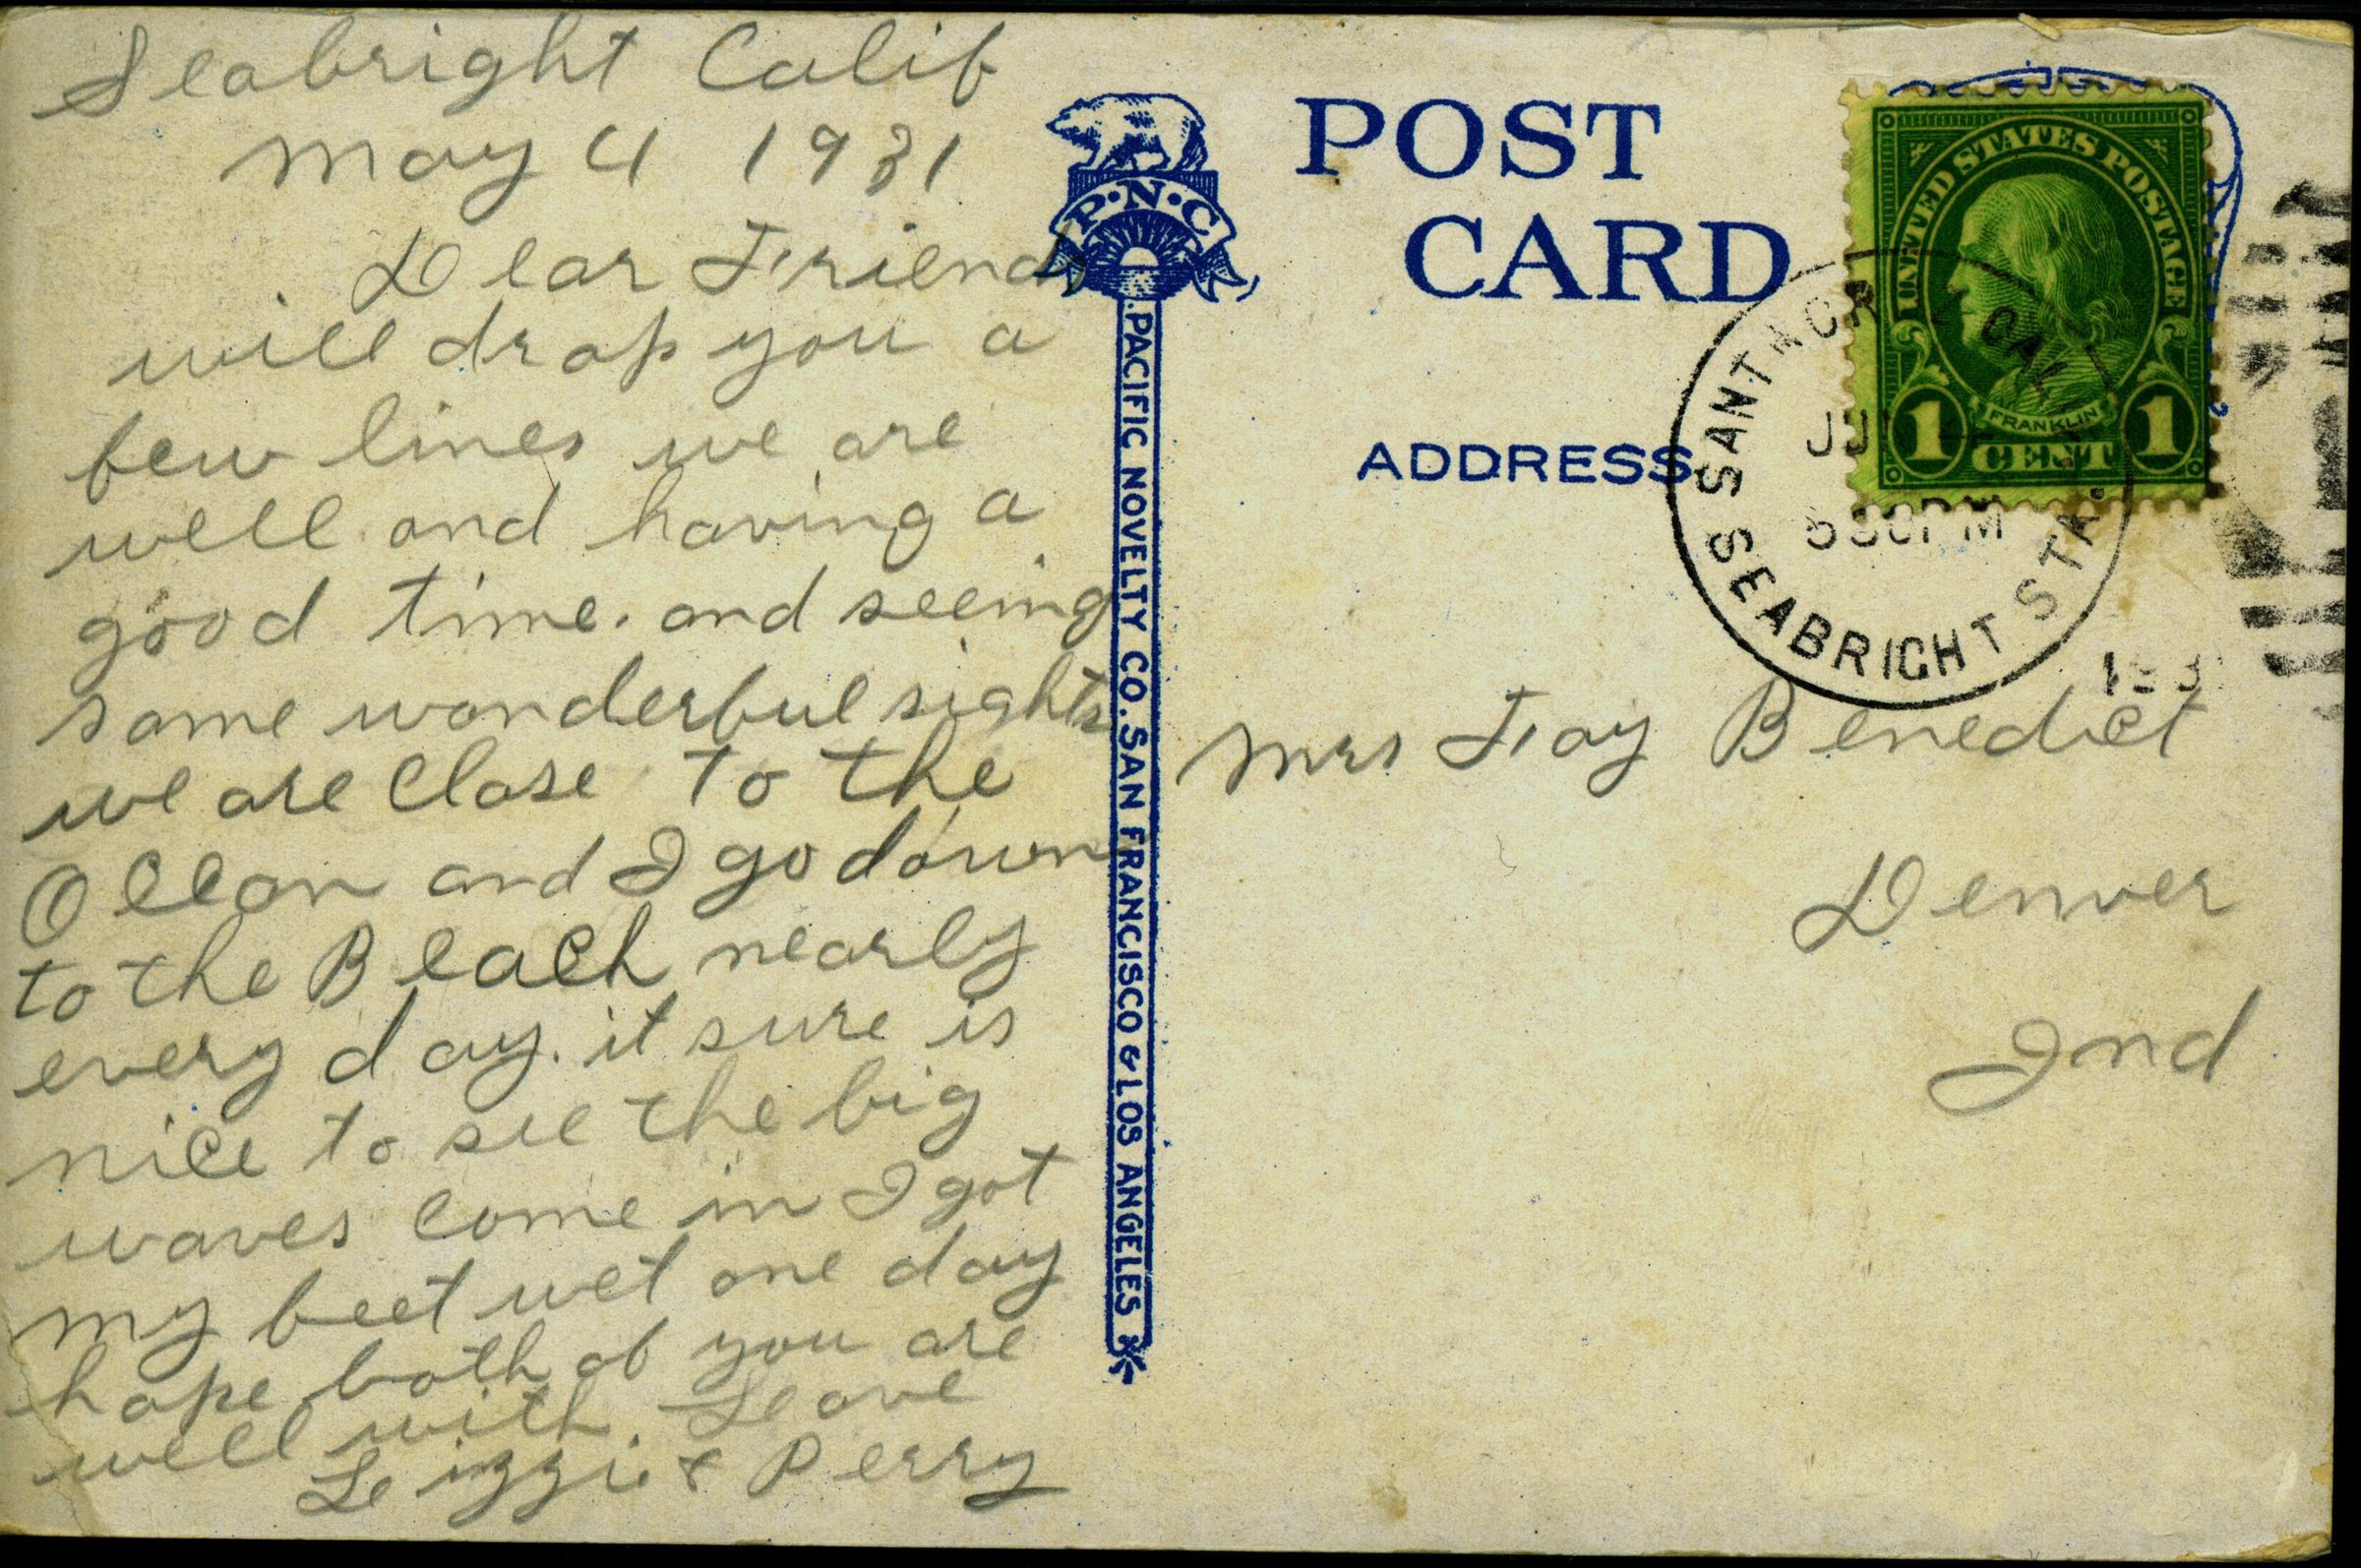 Seabright Calif
May 4 1931
Dear Friend
will drop you a
few lines we are
well and having a
good time. and seeing
some wonderful sights
we are close to the
Ocean and I go down
to the Beach nearly
every day. it sure is
nice to see the big
waves come in I got
my feet wet one day
hope both of you are
well with Love
Lizzie & Perry
P·N·C
PACIFIC NOVELTY CO. SAN FRANCISCO & LOS ANGELES
POST
CARD
ADDRESS
UNITED STATES POSTAGE
FRANKLIN
1 CENT 1
SANTA CRUZ CAL
SEABRIGHT STA.
PM
Mrs Fay Benedict
Denver
Ind